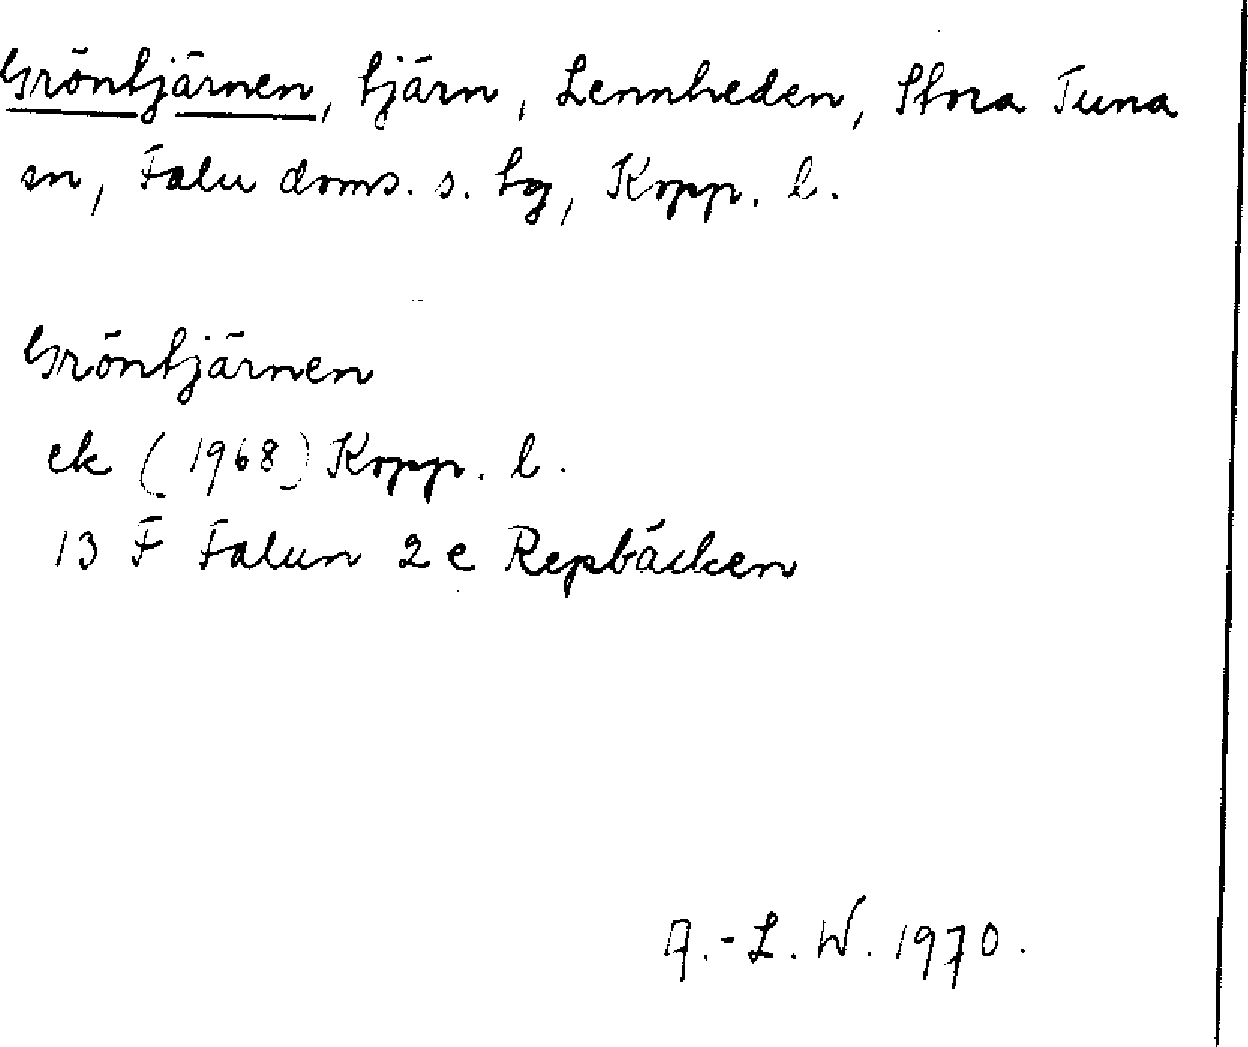 Gröntjärnen, tjärn, Lennheden, Stora Tuna
sn, Falu doms. s. tg, Kopp. l.
Gröntjärnen
ek (1968) Kopp. l.
13 F Falun 2 e Repbäcken
A.-L. W. 1970.